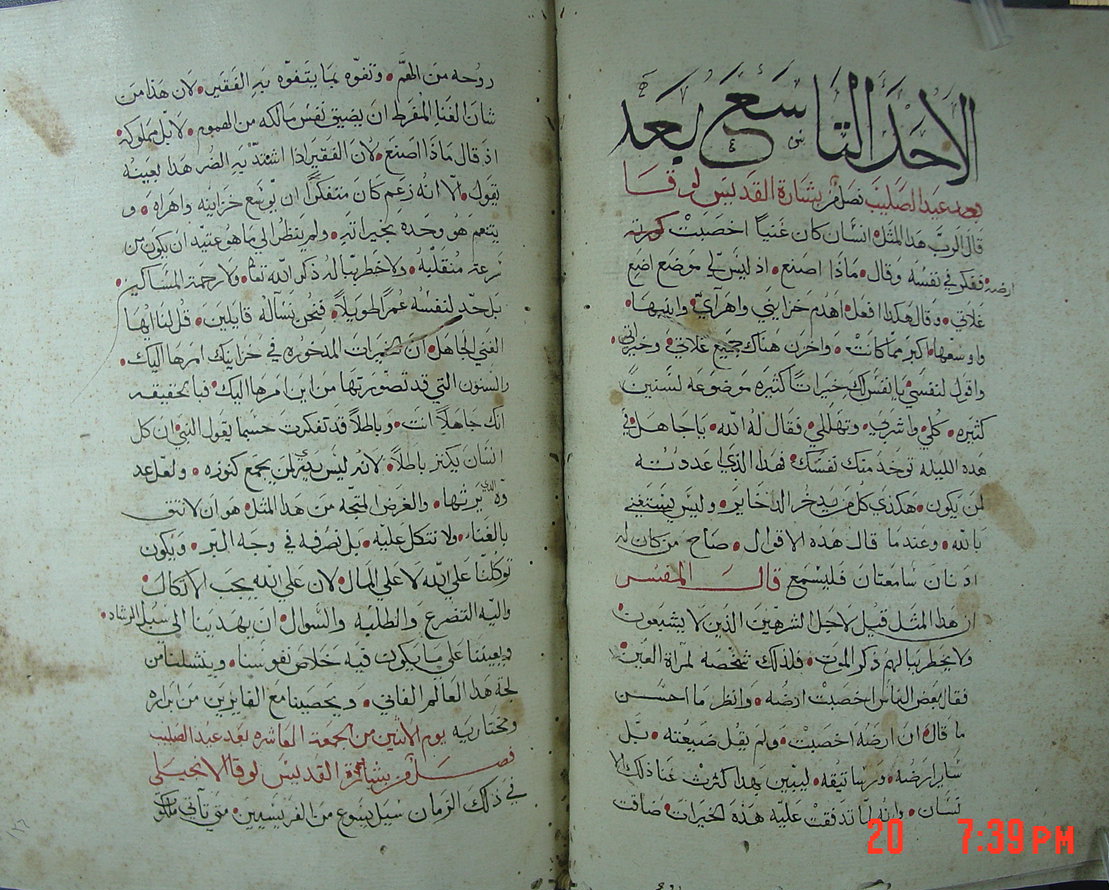 الاحد التاسع بعد
بعد عيد الصليب فصل من بشارة القديس لوقا
قال الرب هذا المثل انسان كان غنياً اخصبت كورته
ارضه ففكر في نفسه وقال ماذا اصنع اذ ليس لي موضع اضع
غلاتي وقال هكذا افعل اهدم خزايني واهرآي وابنيها
واوسعها اكبر مما كانت واخزن هناك جميع غلاتي وخيراتي
واقول لنفسي يا نفس لك خيرات كثيره موضوعه لسنين
كثيره كلي واشربي وتهللي فقال له الله يا جاهل في
هذه الليله توخد منك نفسك فهذا الذي اعددته
لمن يكون هكذي كل من يدخر الدخاير وليس يستغني
بالله وعندما قال هذه الاقوال صاح من كان له
اذنان سامعتان فليسمع قال المفسر
ان هذا المثل قيل لاجل الشرهين الذين لا يشبعون
ولا يخطر ببالهم ذكر الموت فلذلك شخصه لمرآة العين
فقال بعض الناس اخصبت ارضه وانظر ما احسن
ما قال ان ارضه اخصبت ولم يقل ضيعته بل
ساير ارضه ورساتيقه ليبين بهذا كثرت غنا ذلك الا
نسان وانه لما تدفقت عليه هذه الخيرات ضاقت
روحه من الهم وتفوه بما يتفوه به الفقير لان هذا من
شان الغنا المفرط ان يضيق نفس مالكه من الهموم لا بل مملوكه
اذ قال ماذا اصنع لان الفقير اذا اشتد به الضر هذا بعينه
يقول الا انه زعم كان متفكراً ان يوسع خزاينه واهراه و
يتنعم هو وحده بخيراته ولم ينظر الى ما هو عتيد ان يكون من
سرعة منقلبه ولا خطر بباله ذكر الله تعا ولا رحمة المساكين
بل حدد لنفسه عمراً طويلاً فنحن نساله قايلين قل لنا ايها
الغني الجاهل ان الخيرات المذخوره في خزاينك امرها اليك
والسنون التي قد تصورتها من اين امرها اليك فبالحقيقه
انك جاهلاً انت وباطلاً قد تفكرت حسبما يقول النبي ان كل
انسان يكنز باطلاً لانه ليس يدري لمن يجمع كنوزه ولعل عد
وه الذي يرثها والغرض المتجه من هذا المثل هو ان لا نثق
بالغنا ولا نتكل عليه بل نصرفه في وجه البر ويكون
توكلنا على الله لا على المال لان على الله يجب الاتكال
واليه التضرع والطلبه والسوال ان يهدينا الى سبيل الرشاد
ويعيننا على ما يكون فيه خلاص نفوسنا وينشلنا من
لجة هذا العالم الفاني ويحصينا مع الفايزين من ابراره
ومختاريه يوم الاثنين من الجمعة العاشره بعد عيد الصليب
فصل من بشارة القديس لوقا الانجيلي
في ذلك الزمان سيل يسوع من الفريسيين متى تاتي ملكو
20 7:39 PM